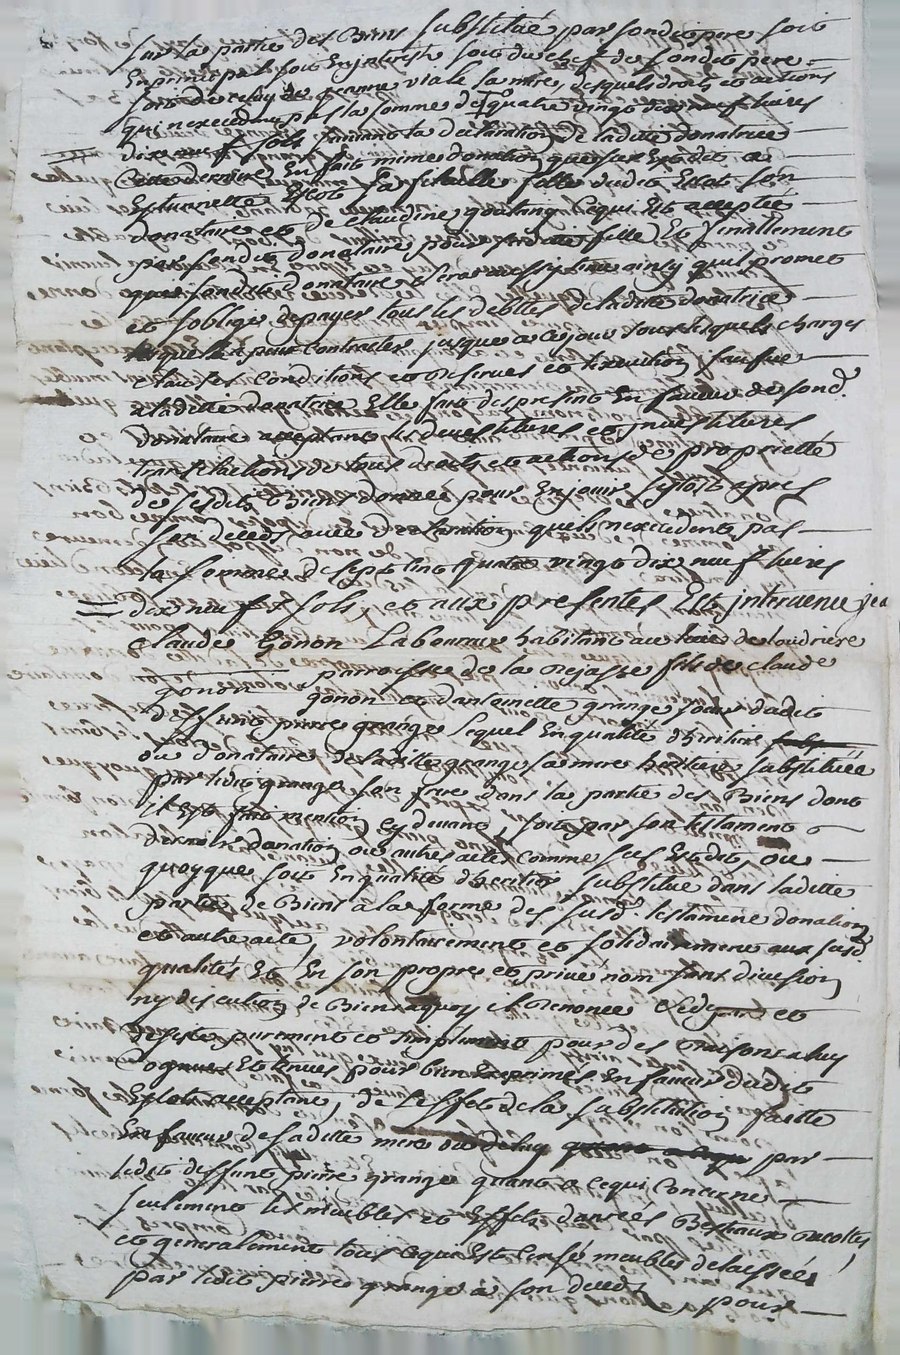 sur la partie des Biens substitué par sondit pere soit
En principal soit En jnterest soit du chef de sondit pere
soit de celuy de jeanne viale sa mere, desquels droits et actions
qui n'excedent pas la somme de quatre vingt dix neuf livres
dix neuf sols suivant la declaration de laditte donatrice
Cette derniere En fait mime donation que sus Est dit a
Estiennette Esclot sa filieulle fille dudit Esclot son
donataire et de Claudine goutang ce qui Est acceptée
par sondit donataire pour sadite fille Et finallement
que sondit donataire ainsy qu'il promet
et s'oblige de payer tous les debtes de laditte donatrice
qu'elle a pu Contracter jusques a ce jour sous lesquels charges
clauses Conditions et Reserves et
a laditte donatrice Elle fait des present En faveur de sond.
donataire acceptant les devestitures et jnvestitures
translactions de tous droits et actions de propriettée
de sesdits Biens donnée pour En jouir sytost apres
son decedz avec declaration quels n'excedent pas
la somme de sept Cent quatre vingt dix neuf livres
dix neuf sols, et aux presentes Est jntervenu jea
claude Gonon Laboureur habitant au lieu de loudriere
parroisse de la Rejasse fils de Claude
gonon et d'antoinette grange soeur dudit
deffunt pierre grange lequel En qualité d'heritier
ou donataire de laditte grange sa mere heritiere substituée
par ledit grange son frere dans la partie des Biens dont
il Est fait mention cy devant, soit par son testament
derniere donation ou autres actes comme sus Est dit, ou
quoyque soit En qualité d'heritier substitué dans laditte
partie de Biens a la forme des susd. testament donation
et autre acte, volontairement et solidairement aux susd.
qualités Et En son propre et privé nom sans division
ny discution de Biens a quoy il Renonce Cede et
desiste purement et simplement pour des raisons a luy
Cognues Et tenues pour bien Exprimés En faveur dudit
Esclot acceptant, de L'effet de la substitution faitte
En faveur de sadite mere ou de luy par
ledit deffunt pierre grange quant a ce qui Concerne
seulement les meubles et Effets danrées Bestiaux recoltes
et generalement tous ce qui Est Censé meubles delaissées
par ledit pierre grange a son decedz, pour